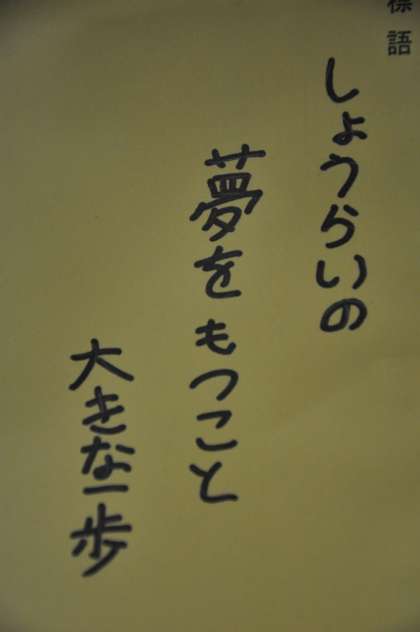 標語
しょうらいの
夢をもつこと
大きな一歩